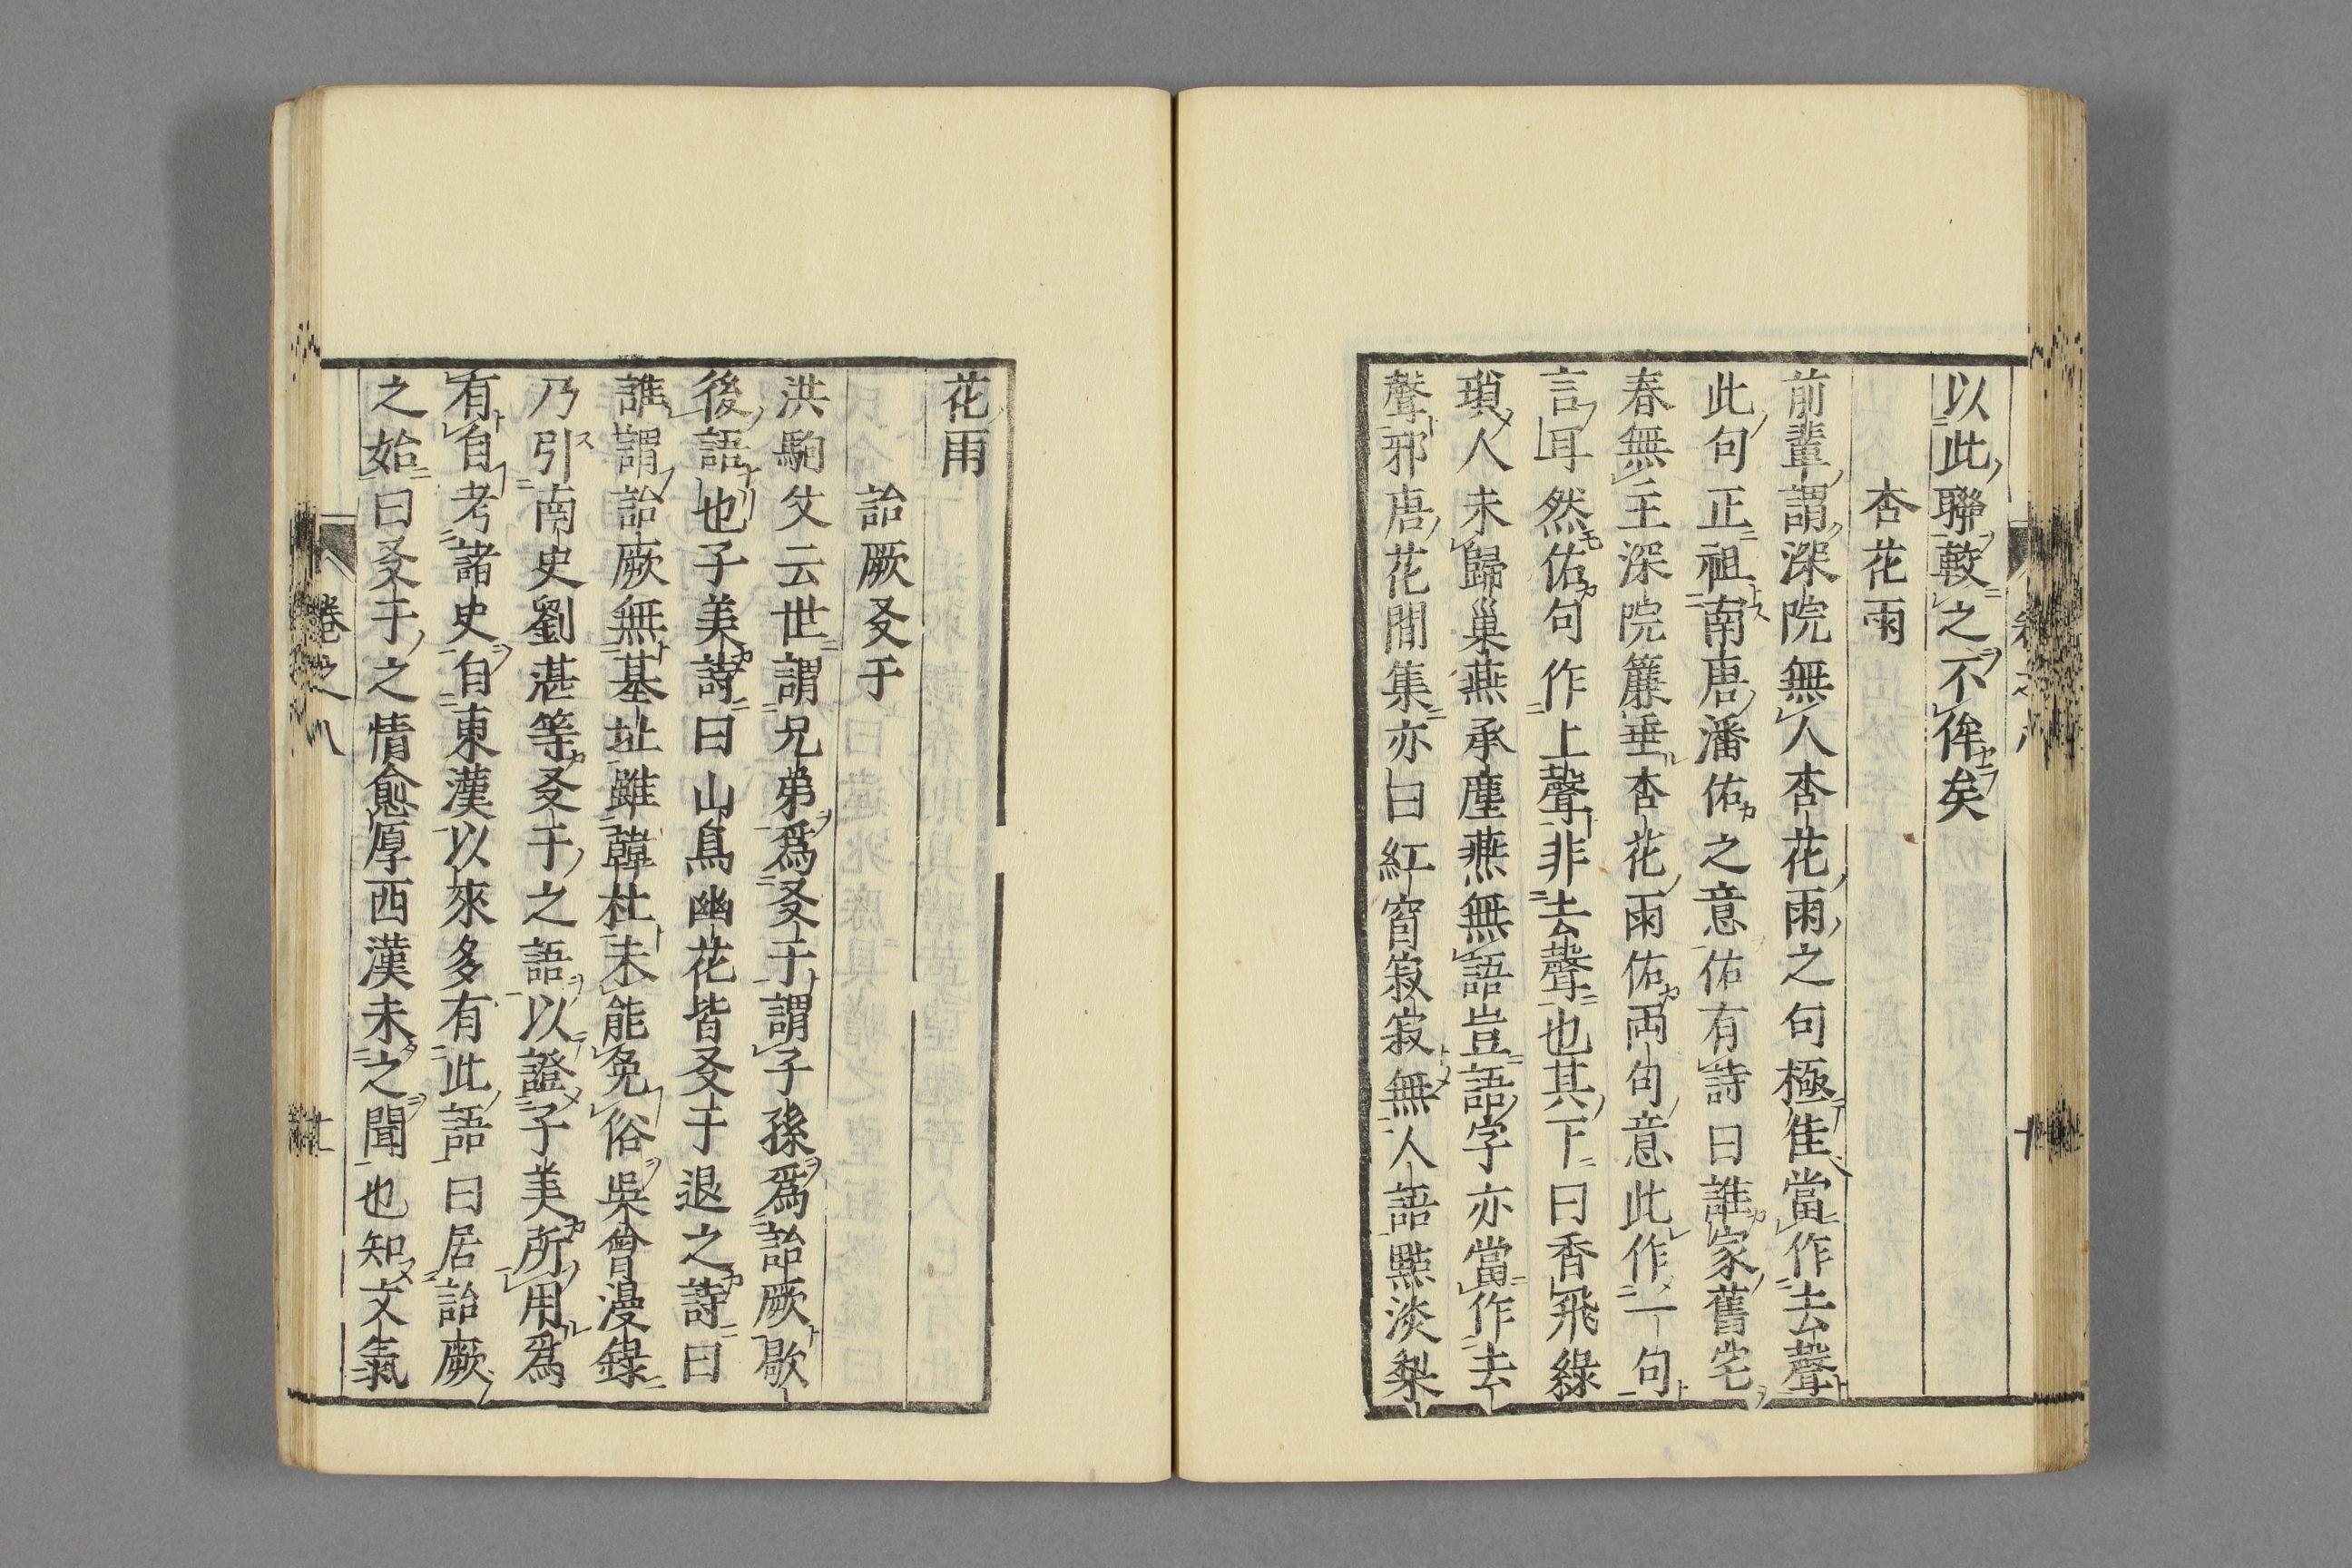 以此聯較之不侔矣
杏花雨
前輩謂深院無人杏花雨之句極佳當作去聲
此句正祖南唐潘佑之意佑有詩曰誰家舊宅
春無主深院簾垂杏花雨佑両句意此作一句
言耳然佑句作上聲非去聲也其下曰香飛綠
瑣人未歸巢燕承塵燕無語豈語字亦當作去
聲邪唐花間集亦曰紅窗寂寂無人語黯淡梨
花雨
詒厥友于
洪駒父云世謂兄弟爲友于謂子孫爲詒厥歇
後語也子美詩曰山鳥幽花皆友于退之詩曰
誰謂詒厥無基址雖韓杜未能免俗吳曾漫錄
乃引南史劉湛等友于之語以證子美所用爲
有自考諸史自東漢以來多有此語曰居詒厥
之始曰友于之情愈厚西漢未之聞也知文氣
卷之八